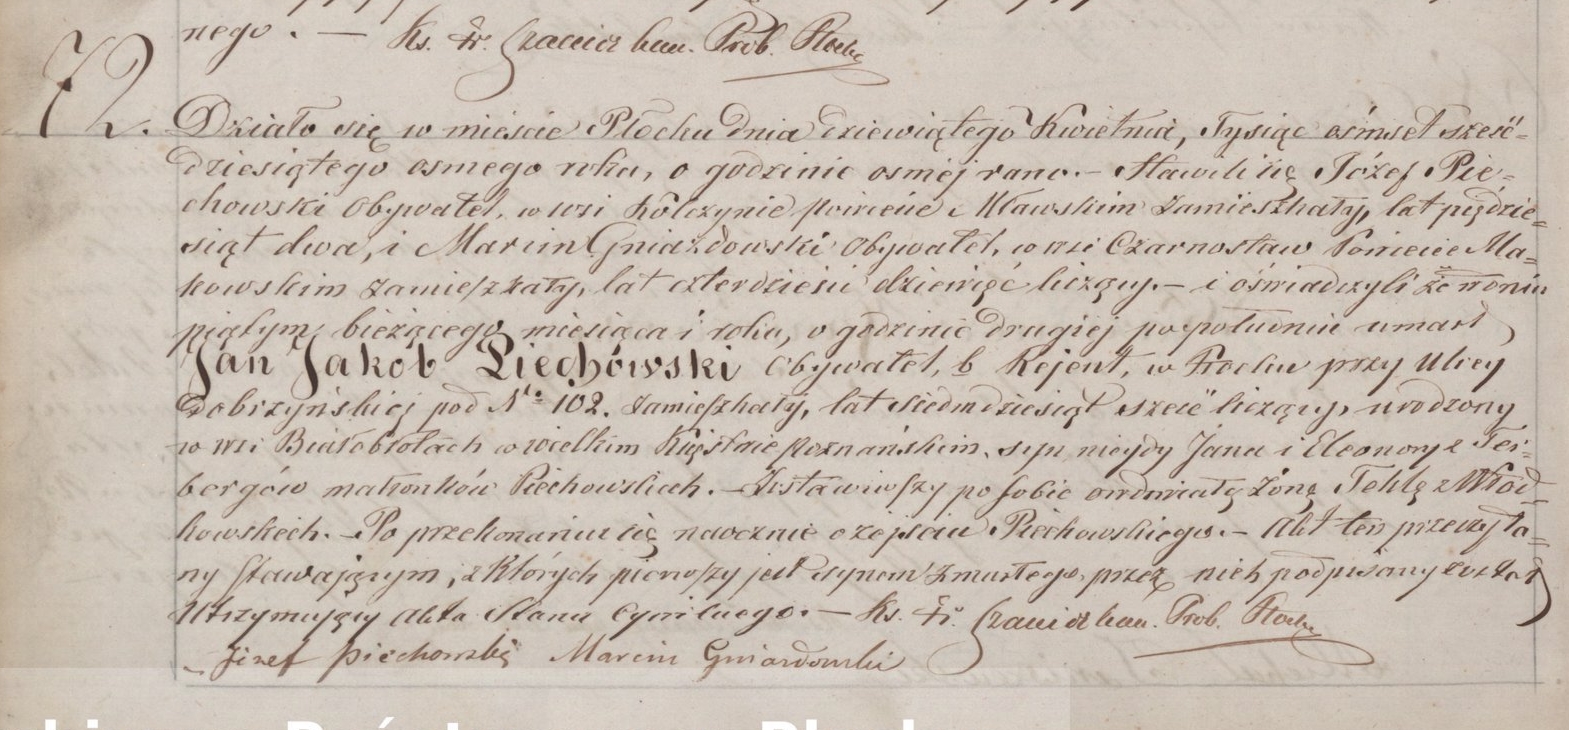 nego. — Ks. Fr. kan. Prob. Płocki
72. Działo się w mieście Płocku dnia dziewiątego Kwietnia, Tysiąc ośmset sześć=
dziesiątego osmego roku, o godzinie osmej rano. – Stawili się Józef Pie=
chowski Obywatel, w wsi Kólczynie powiecie Mławskim zamieszkały, lat pięćdzie=
siąt dwa, i Marcin Gniazdowski Obywatel, w wsi Czarnostaw Powiecie Ma=
kowskim zamieszkały, lat czterdzieści dziewięć liczący. – i oświadczyli że w dniu
piątym bieżącego miesiąca i roku, o godzinie drugiej popołudniu umarł
Jan Jakob Piechowski Obywatel, b Rejent, w Płocku przy Ulicy
Dobrzyńskiej pod No 102. zamieszkały, lat siedmdziesiąt sześć liczący, urodzony
w wsi Białobłotach w wielkim Księstwie poznańskim, syn niegdy Jana i Eleonory z Fei=
bergów małżonków Piechowskich. – Zostawiwszy po sobie owdowiałą żonę Teklę z Włod=
kowskich. – Po przekonaniu się naocznie o zejściu Piechowskiego. – Akt ten przeczyta=
ny stawającym, z których pierwszy jest synem zmarłego, przez nich podpisany został
Utrzymujący Akta Stanu Cywilnego. – Ks. Fr. kan. Prob. Płocki
Józef Piechowski Marcin Gniazdowski